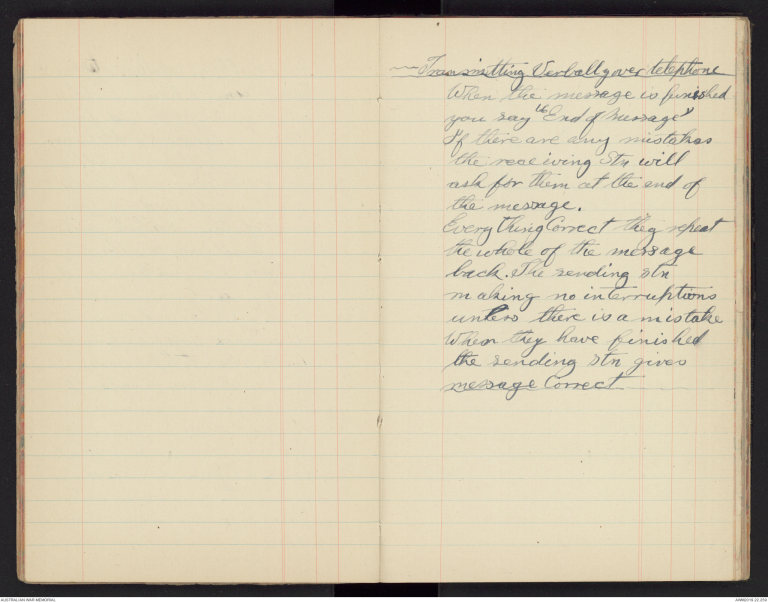 Transmitting Verbally over telephone
When the message is finished
you say "End of Message"
If there are any mistakes
the receiving Stn will
ask for them at the end of
the message.
Every Thing Correct they repeat
the whole of the message
back. The sending stn
making no interruptions
unless there is a mistake
When they have finished
the sending stn gives
message Correct
AUSTRALIAN WAR MEMORIAL